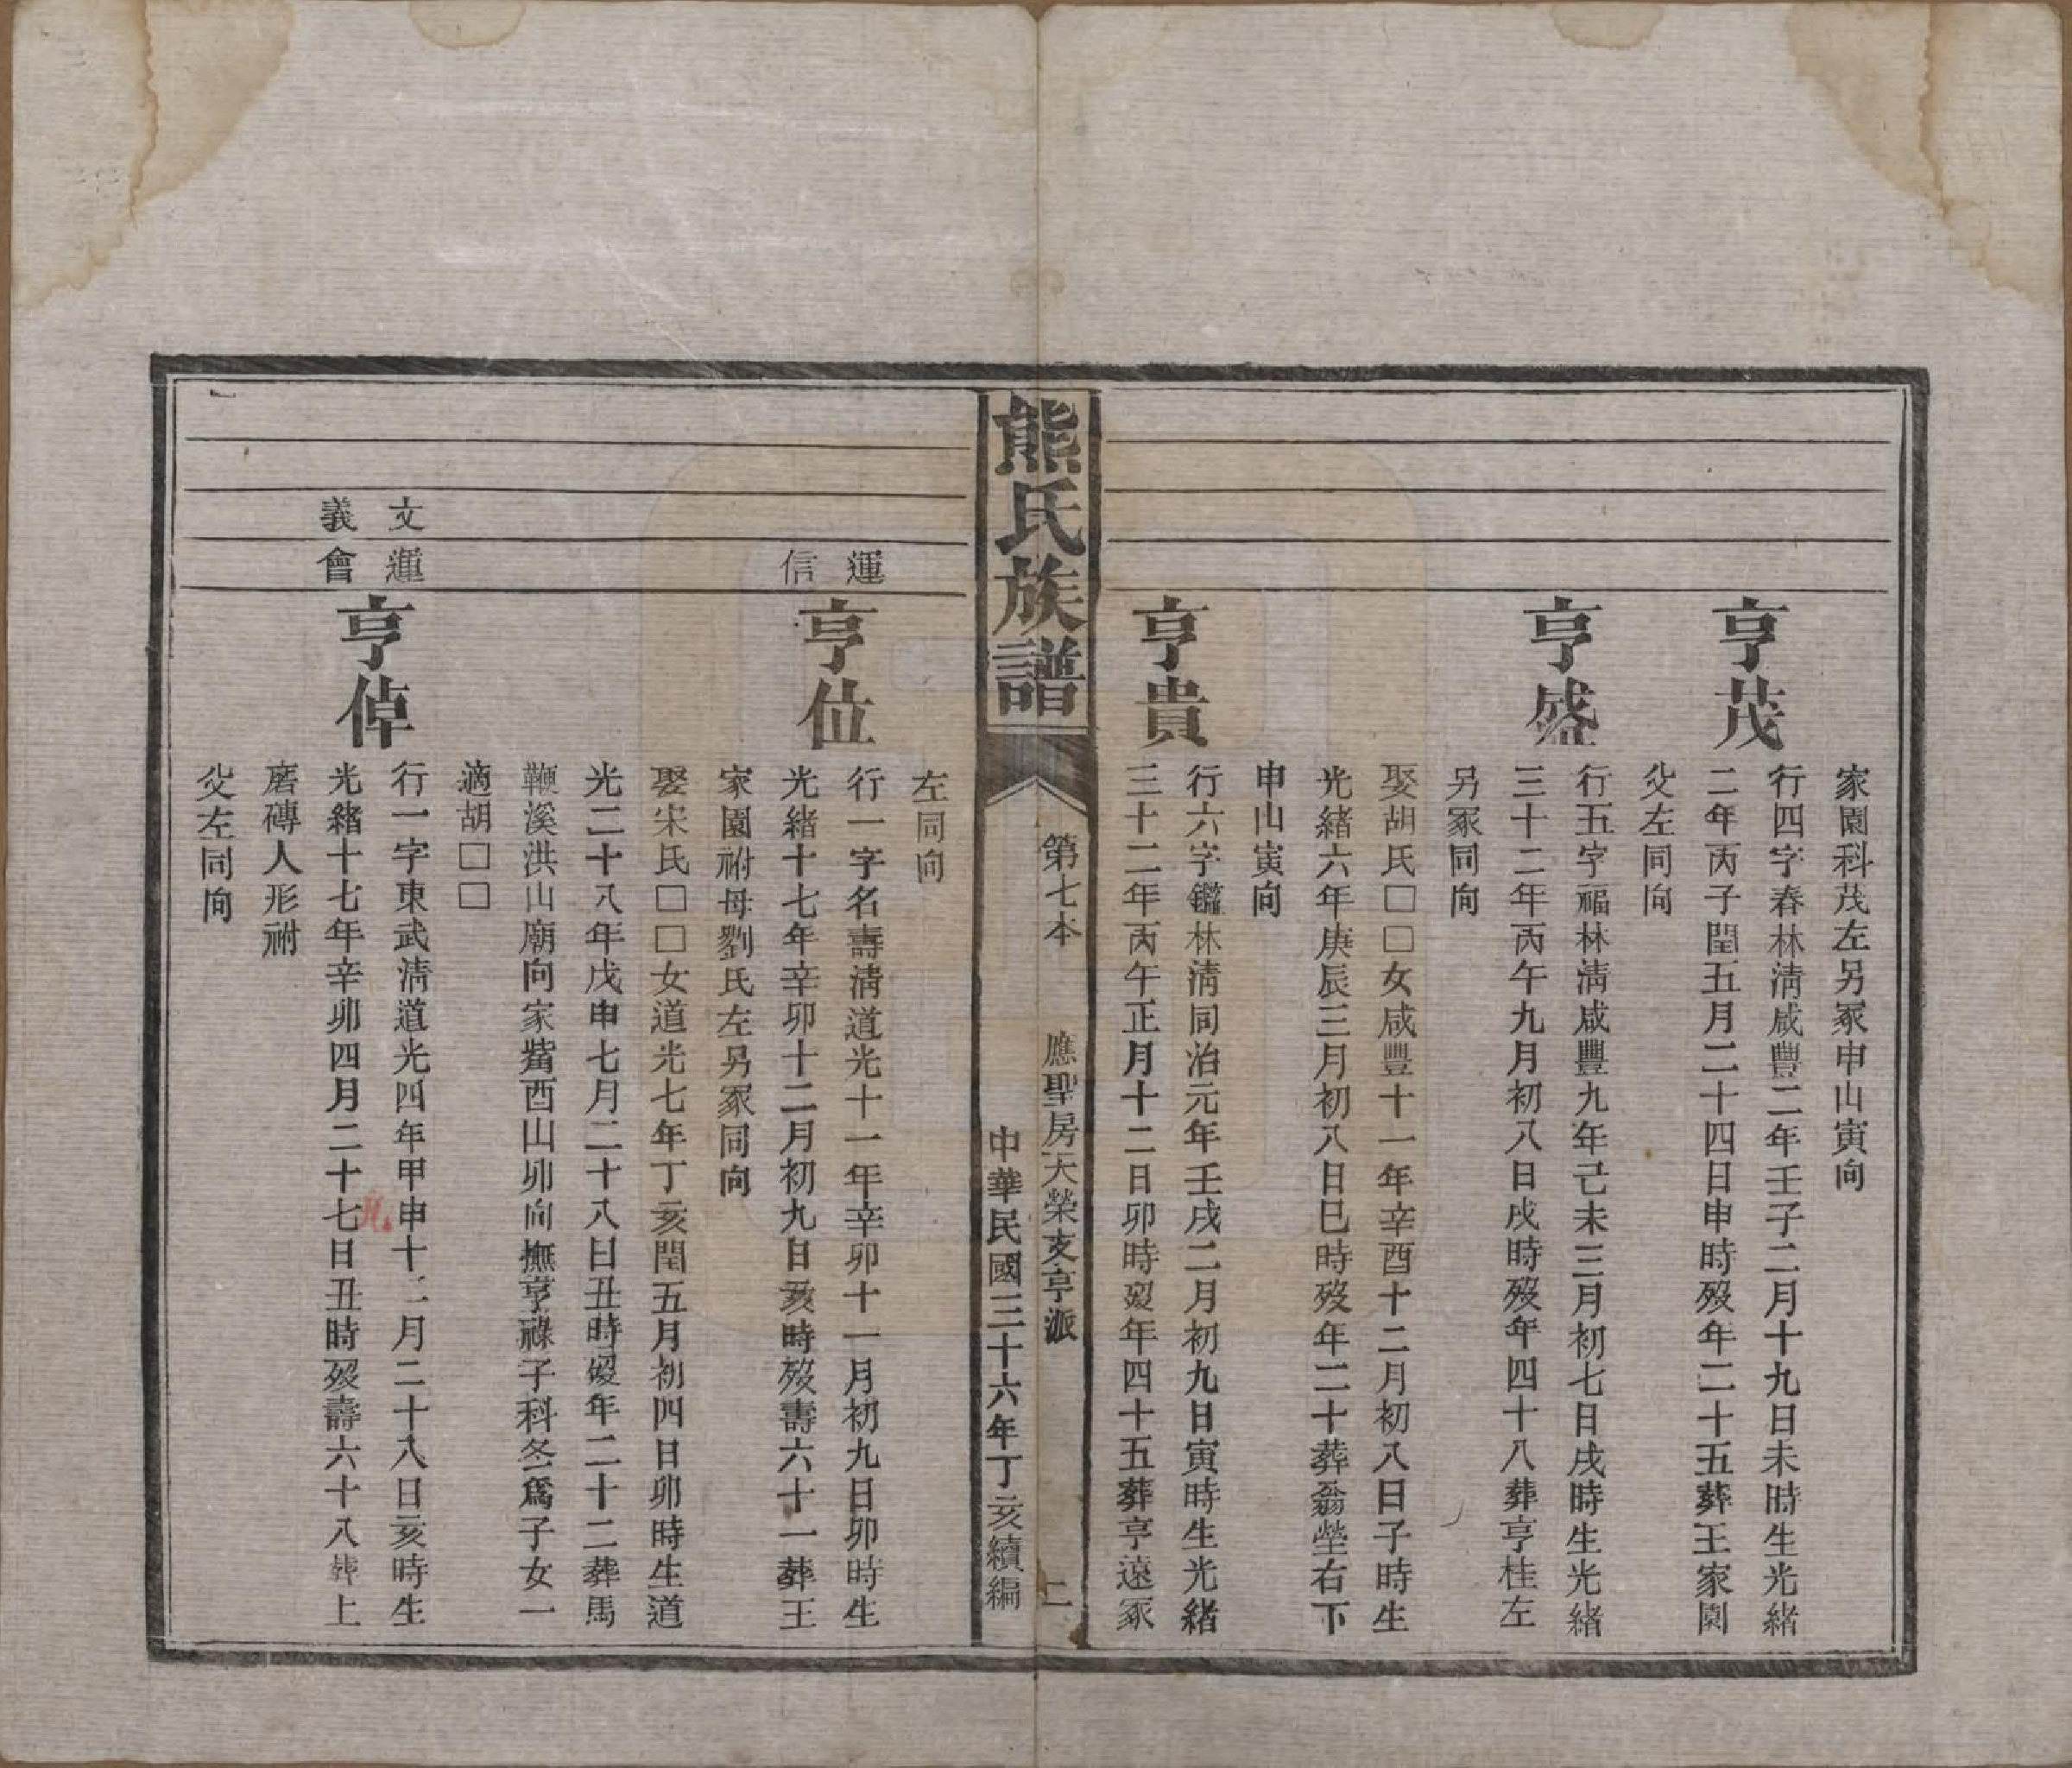 家園科茂左另冢申山寅向
亨茂
行四字春林淸咸豐二年壬子二月十九日未時生光緒
二年丙子閏五月二十四日申時歿年二十五葬王家園
父左同向
亨盛
行五字福林淸咸豐九年己未三月初七日戌時生光緒
三十二年丙午九月初八日戌時歿年四十八葬亨桂左
另冢同向
娶胡氏□□女咸豐十一年辛酉十二月初八日子時生
光緒六年庚辰三月初八日巳時歿年二十葬翁塋右下
申山寅向
亨貴
行六字鑑林淸同治元年壬戌二月初九日寅時生光緒
三十二年丙午正月十二日卯時歿年四十五葬亨遠冢
熊氏族譜
第七本 應聖房天榮支亨派 二
中華民國三十六年丁亥續編
左同向
運信
亨位
行一字名壽淸道光十一年辛卯十一月初九日卯時生
光緒十七年辛卯十二月初九日亥時歿壽六十一葬王
家園祔母劉氏左另冢同向
娶宋氏□□女道光七年丁亥閏五月初四日卯時生道
光二十八年戊申七月二十八日丑時歿年二十二葬馬
鞭溪洪山廟向家觜酉山卯向撫亨祿子科冬爲子女一
適胡□□
文運
義會
亨倬
行一字東武淸道光四年甲申十二月二十八日亥時生
光緒十七年辛卯四月二十七日丑時歿壽六十八葬上
磨磚人形祔
父左同向